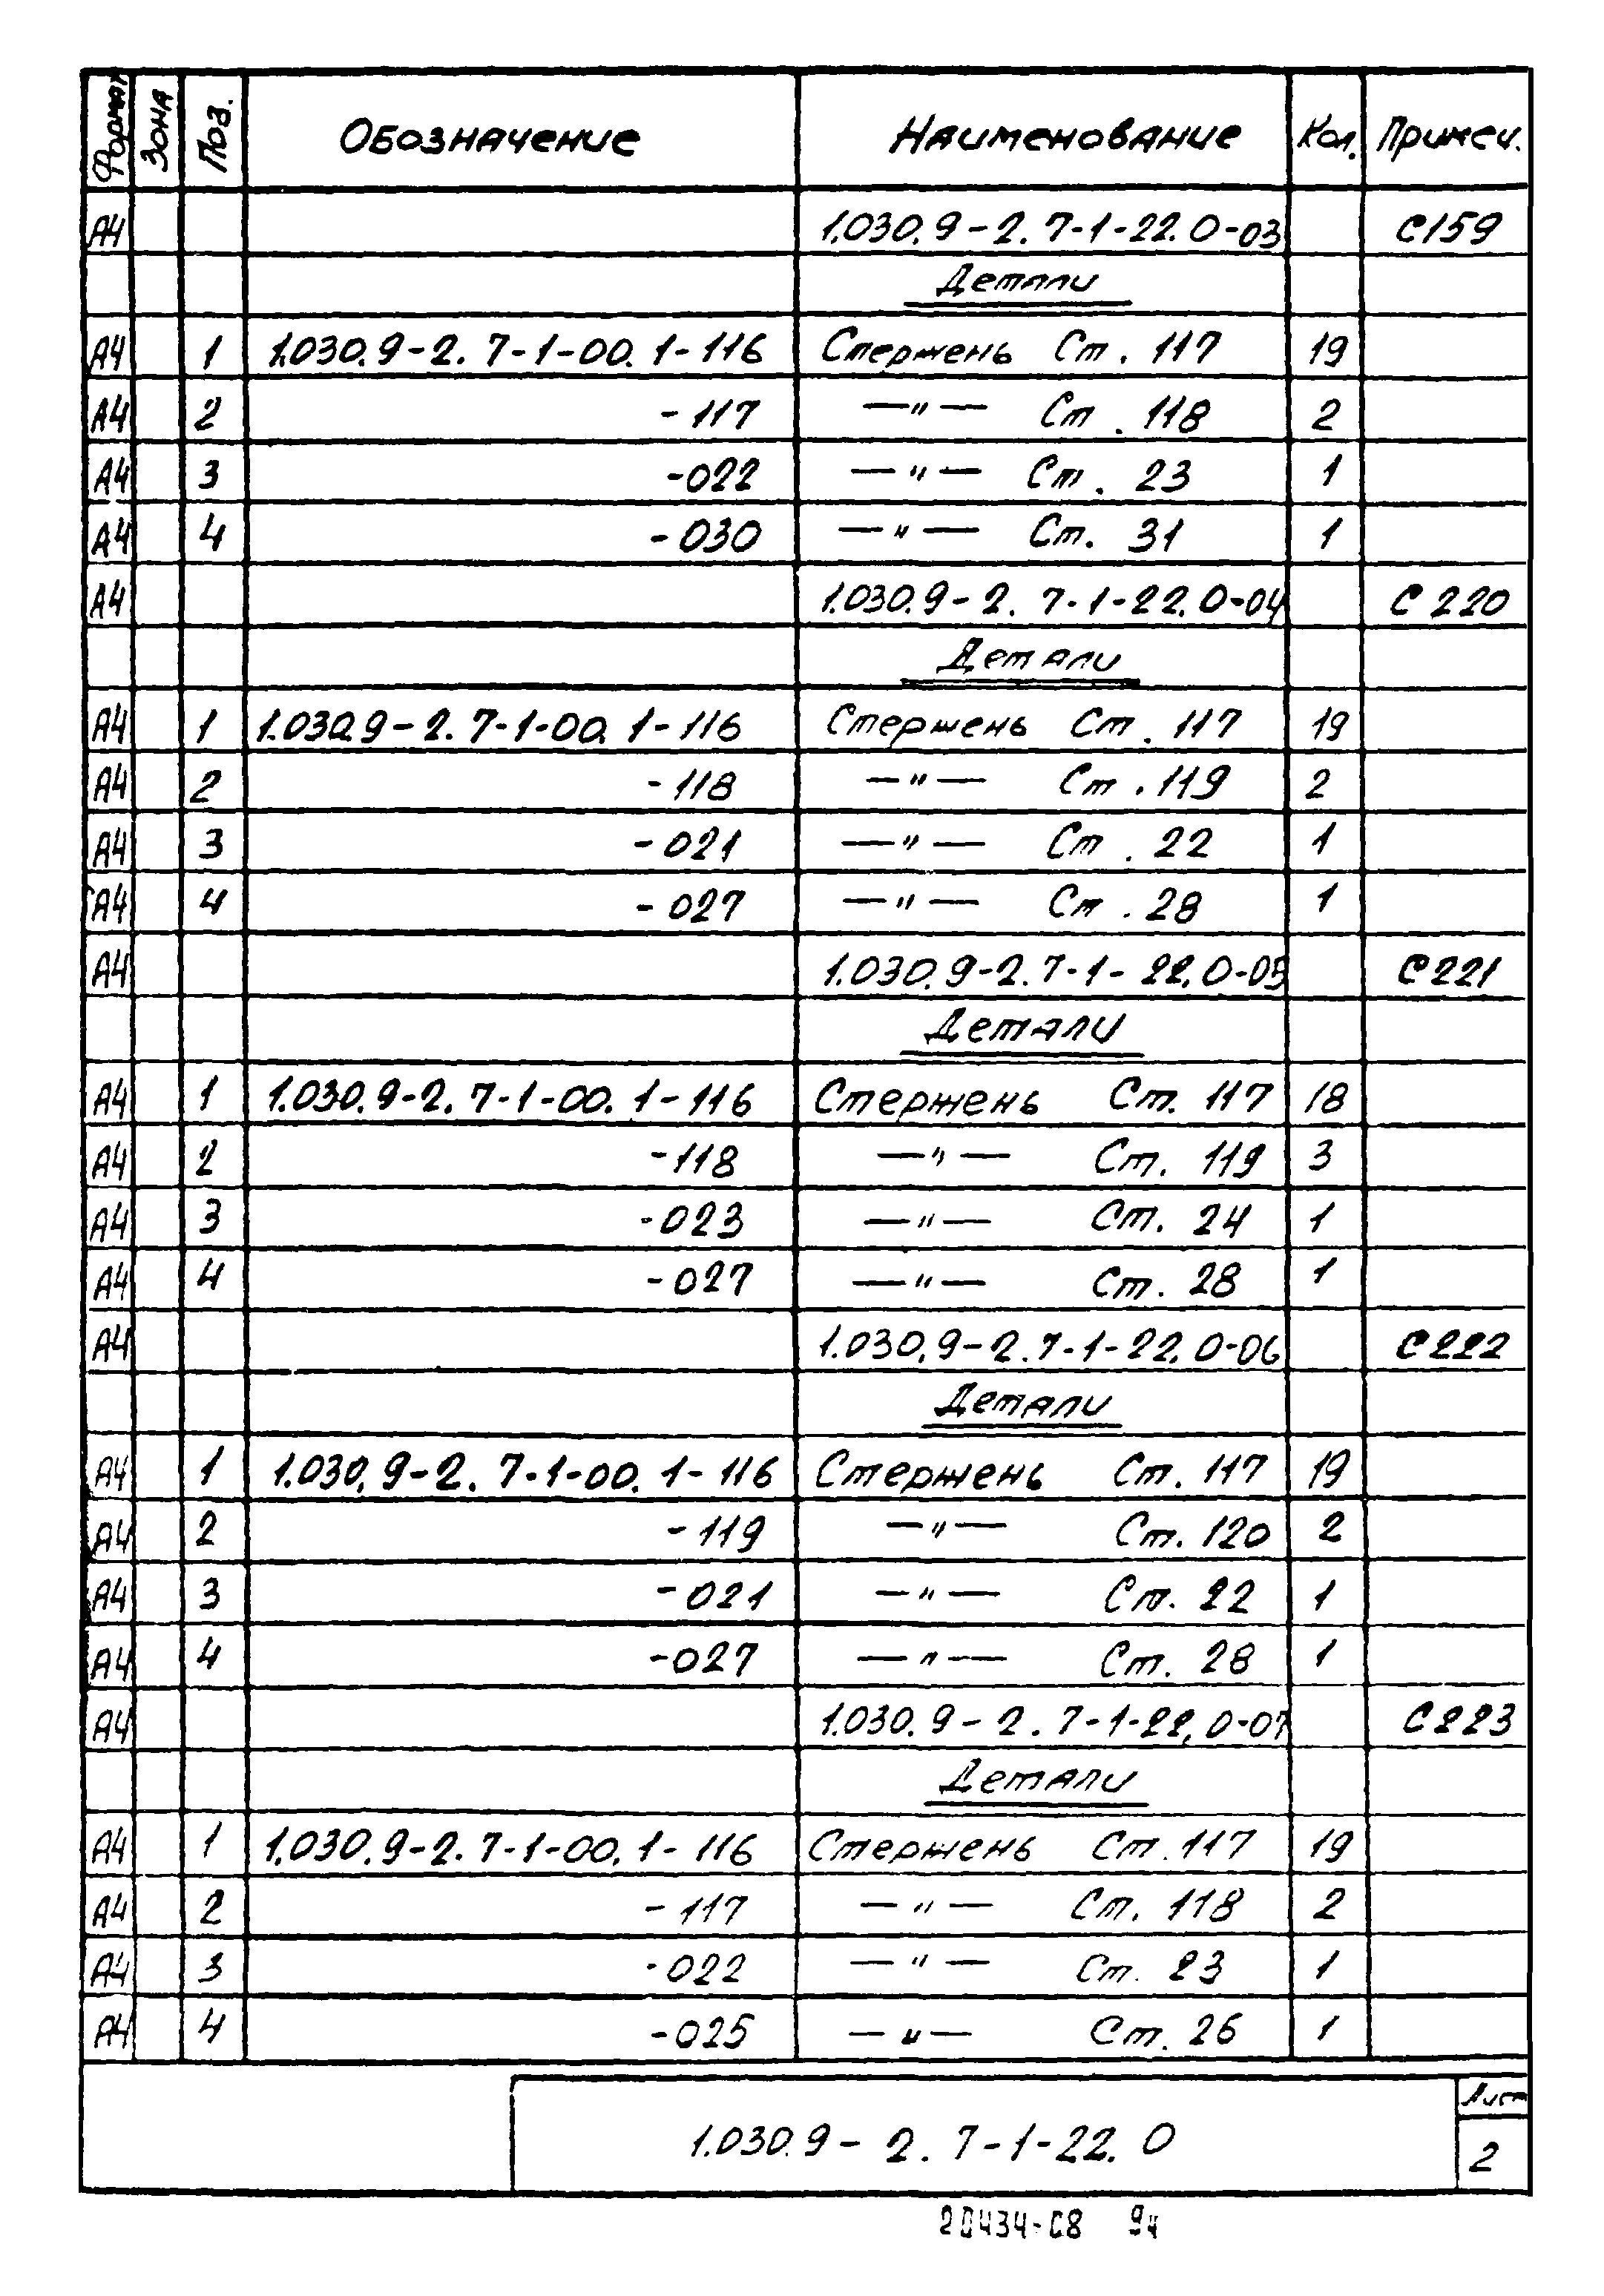 Формат Зона Поз. Обозначение Наименование Кол. Примеч.
А4 1.030.9-2.7-1-22.0-03 С159
Детали
А4 1 1.030.9-2.7-1-00.1-116 Стержень Ст. 117 19
А4 2 -117 —"— Ст. 118 2
А4 3 -022 —"— Ст. 23 1
А4 4 -030 —"— Ст. 31 1
А4 1.030.9-2.7-1-22.0-04 С220
Детали
А4 1 1.030.9-2.7-1-00.1-116 Стержень Ст. 117 19
А4 2 -118 —"— Ст. 119 2
А4 3 -021 —"— Ст. 22 1
А4 4 -027 —"— Ст. 28 1
А4 1.030.9-2.7-1-22.0-05 С221
Детали
А4 1 1.030.9-2.7-1-00.1-116 Стержень Ст. 117 18
А4 2 -118 —"— Ст. 119 3
А4 3 -023 —"— Ст. 24 1
А4 4 -027 —"— Ст. 28 1
А4 1.030.9-2.7-1-22.0-06 С222
Детали
А4 1 1.030.9-2.7-1-00.1-116 Стержень Ст. 117 19
А4 2 -119 —"— Ст. 120 2
А4 3 -021 —"— Ст. 22 1
А4 4 -027 —"— Ст. 28 1
А4 1.030.9-2.7-1-22.0-07 С223
Детали
А4 1 1.030.9-2.7-1-00.1-116 Стержень Ст. 117 19
А4 2 -117 —"— Ст. 118 2
А4 3 -022 —"— Ст. 23 1
А4 4 -025 —"— Ст. 26 1
1.030.9-2.7-1-22.0
Лист
2
20434-08 94